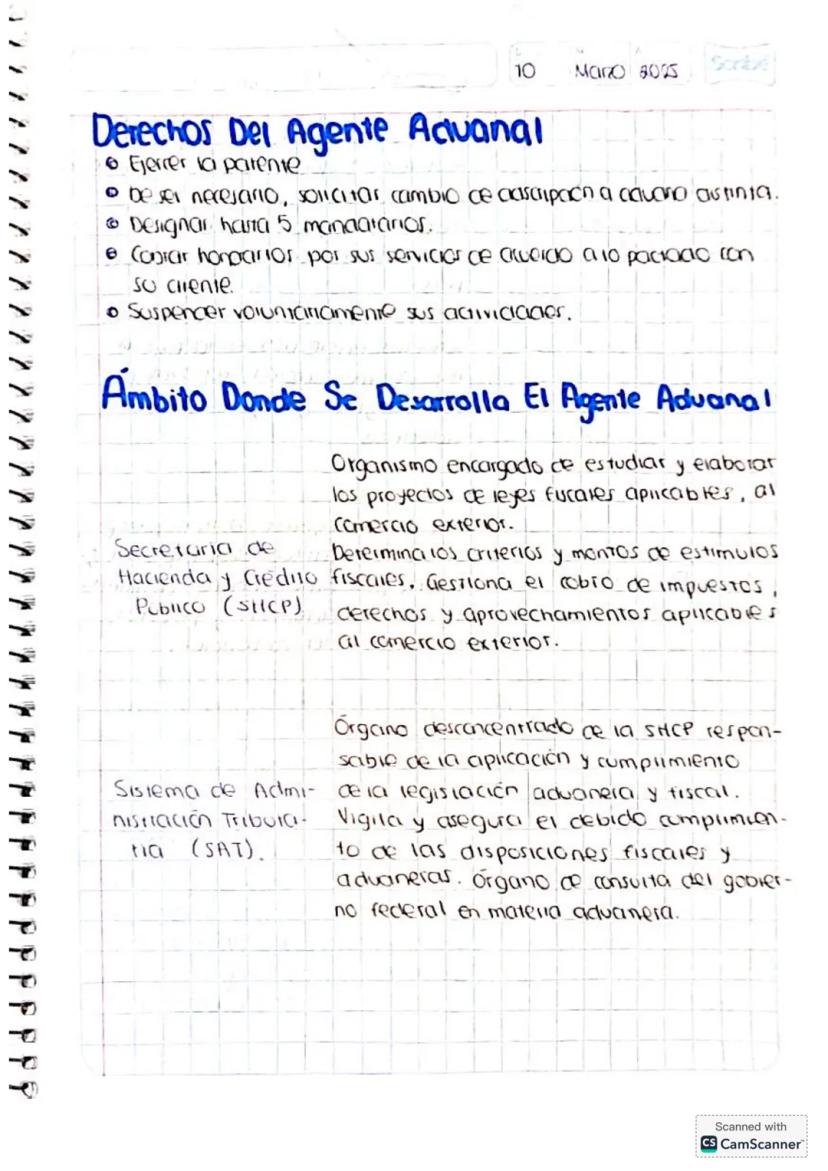 10 Marzo 2025 Scribe
Derechos Del Agente Aduanal
Ejercer la patente
De ser necesario, solicitar cambio de adscripción a aduana distinta.
Designar hasta 5 mandatarios.
Cobrar honorarios por sus servicios de acuerdo a lo pactado con
su cliente.
Suspender voluntariamente sus actividades.
Ámbito Donde Se Desarrolla El Agente Aduanal
Secretaria de
Hacienda y Crédito
Publico (SHCP)
Organismo encargado de estudiar y elaborar
los proyectos de leyes fiscales aplicables, al
comercio exterior.
Determina los criterios y montos de estimulos
fiscales. Gestiona el cobro de impuestos,
derechos y aprovechamientos aplicables
al comercio exterior.
Sistema de Admi-
nistración Tributa-
ria (SAT).
Órgano desconcentrado de la SHCP respon-
sable de la aplicación y cumplimiento
de la legislación aduanera y fiscal.
Vigila y asegura el debido cumplimien-
to de las disposiciones fiscales y
aduaneras. Órgano de consulta del gobier-
no federal en materia aduanera.
Scanned with
CS CamScanner